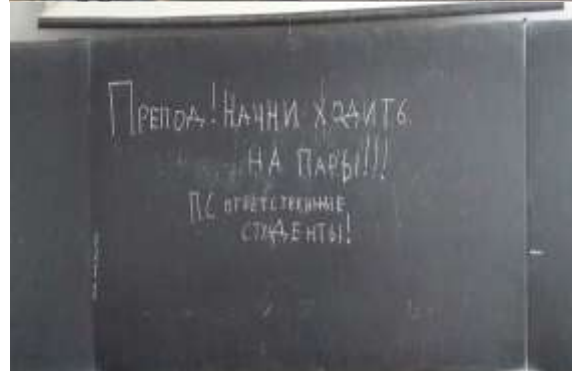 Препод! Начни ходить
на пары!!!
ПС ответственные
студенты!